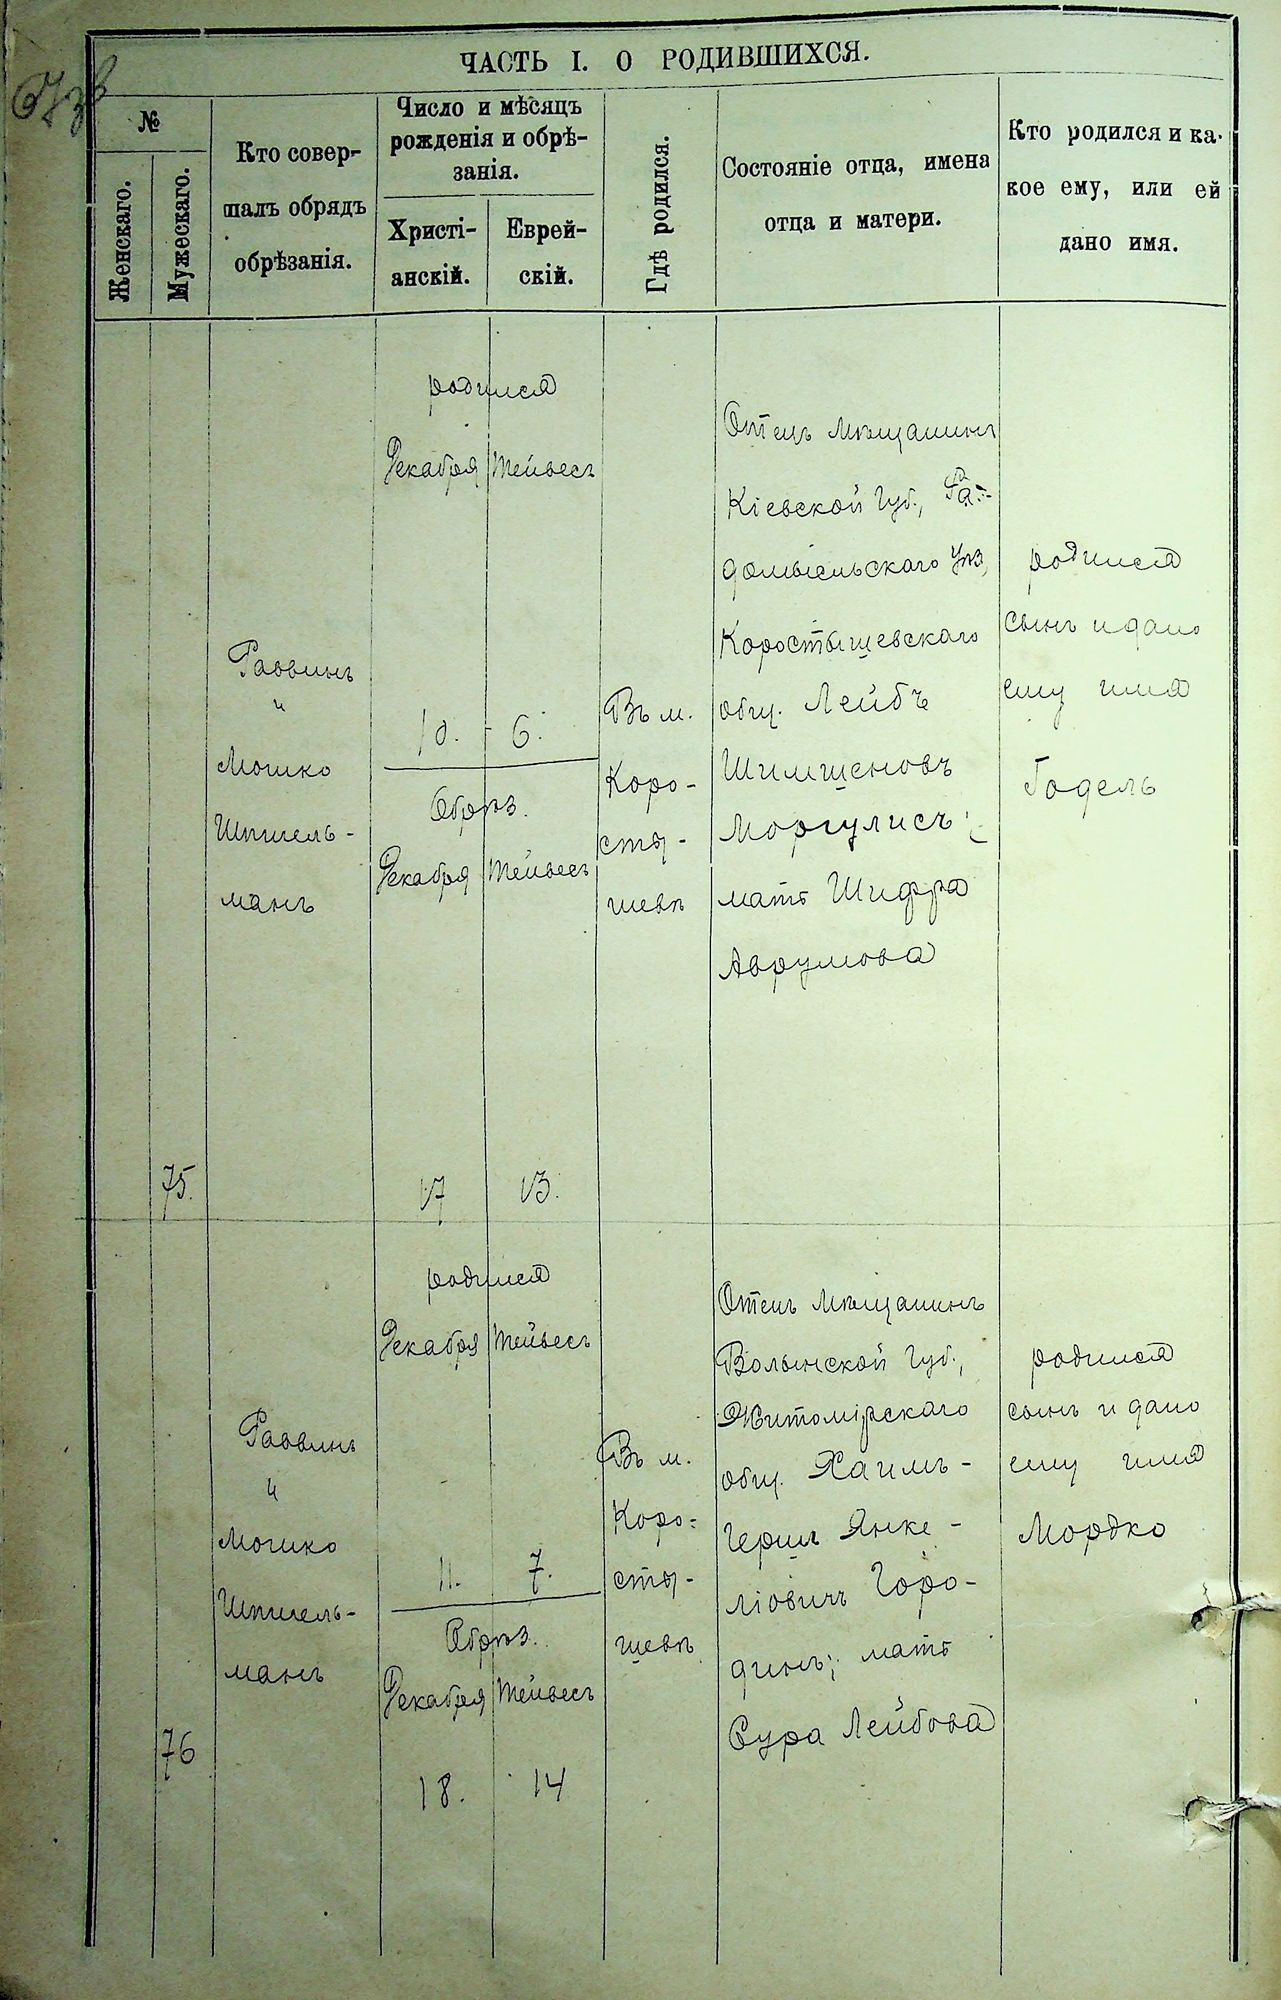 ЧАСТЬ I. О РОДИВШИХСЯ.
№
Женскаго.
Мужескаго.
Кто совер-
шалъ обрядъ
обрѣзанія.
Число и мѣсяцъ
рожденія и обрѣ-
занія.
Христі-
анскій.
Еврей-
скій.
Гдѣ родился.
Состояніе отца, имена
отца и матери.
Кто родился и ка-
кое ему, или ей
дано имя.
75.
Раввинъ
и
Мошко
Шпигель-
манъ
родился
Декабря Тейвесъ
10. - 6.
Обрѣз.
Декабря Тейвесъ
17 13.
Въ м.
Коро-
сты-
шевѣ
Отецъ мѣщанинъ
Кіевской Губ., Ра-
домысльскаго уѣз,
Коростышевскаго
общ. Лейбъ
Шимшеновъ
Моргулисъ;
мать Шифра
Аврумова
родился
сынъ и дано
ему имя
Годель
76
Раввинъ
и
Мошко
Шпигель-
манъ
родился
Декабря Тейвесъ
11. 7.
Обрѣз.
Декабря Тейвесъ
18. 14
Въ м.
Коро-
сты-
шевѣ
Отецъ мѣщанинъ
Волынской Губ.,
Житомірскаго
общ. Хаимъ-
Гершъ Янке-
ліовичъ Горо-
динъ; мать
Сура Лейбова
родился
сынъ и дано
ему имя
Мордко